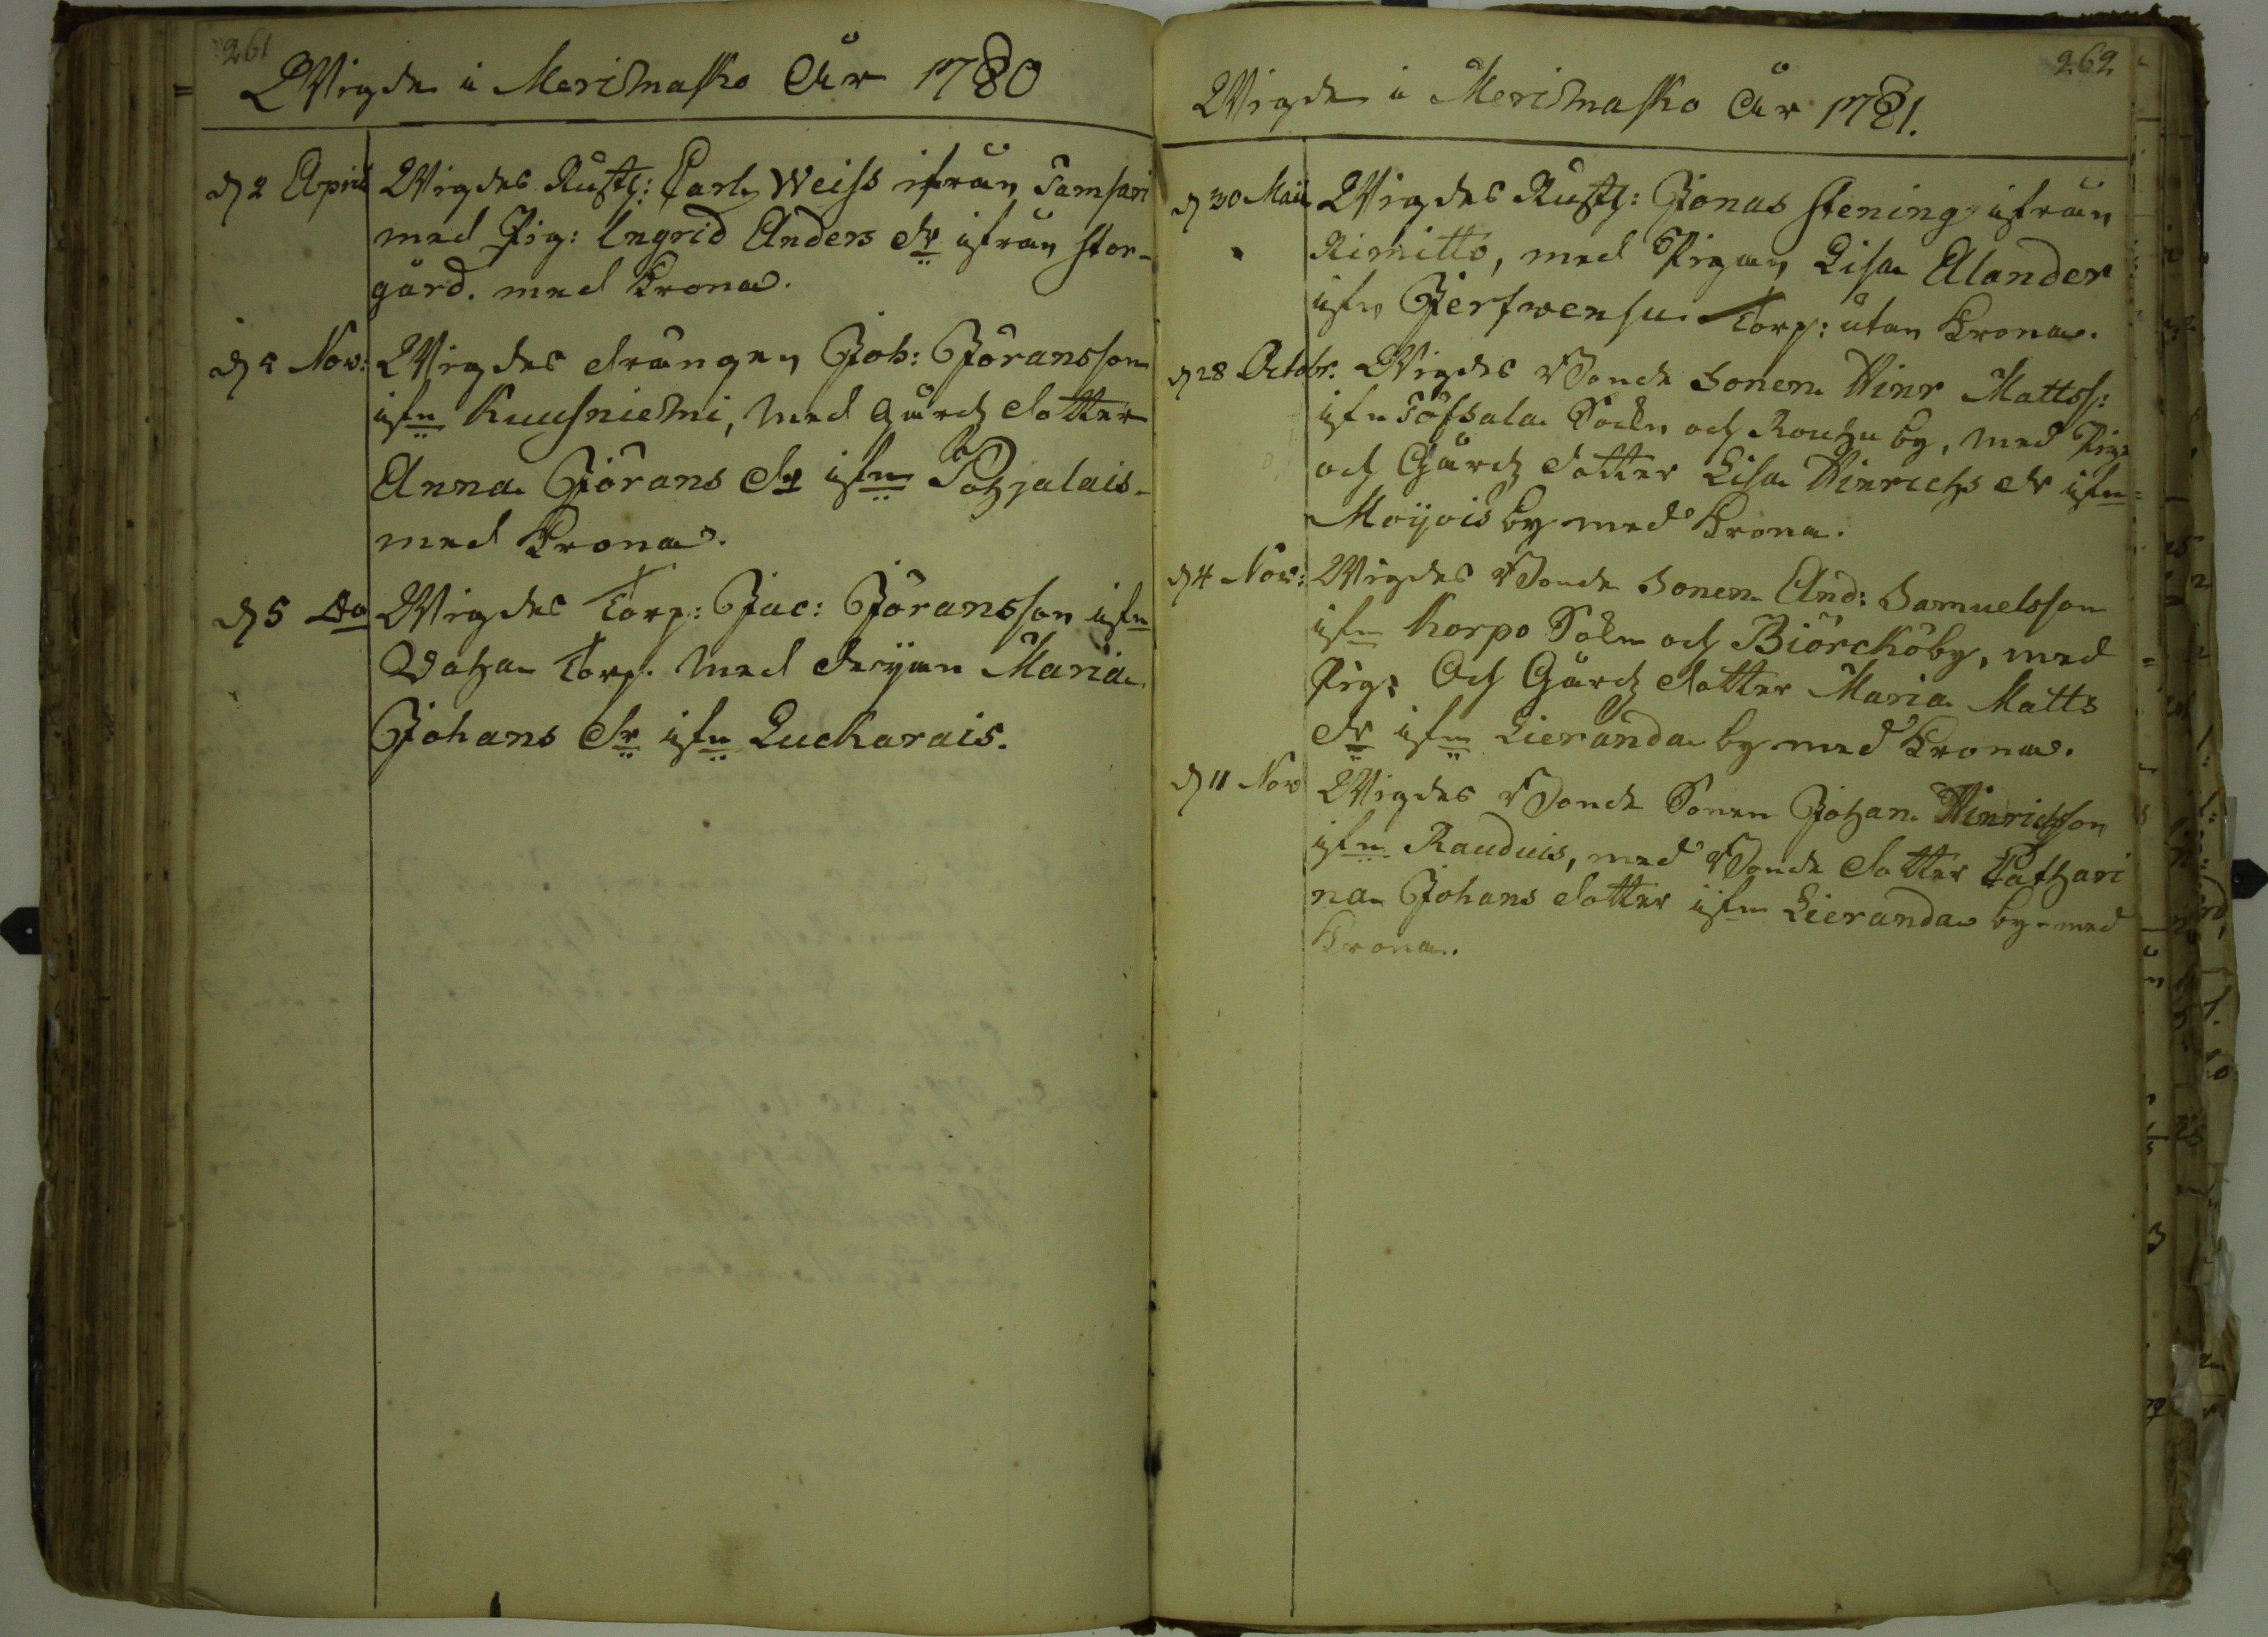 261
Wigde i Merimasko År 1780
d 2 April Wigdes Rusth: Carl Weiss ifrån Samsari
med Pig: Ingrid Anders dr ifrån Stor-
gård. med Krona.
d 5 Nov: Wigdes drängen Joh: Jöransson
ifrn Kuusniemi, med Gårds dotter
Anna Jörans dr ifrn Pohjalais-
med Krona.
d 5 do Wigdes Torp: Jac: Jöransson ifrn
Waha Torp. med Maria
Johans dr ifrn Luckarais.
262
Wigde i Merimasko År 1781.
d 30 Maii Wigdes Rusth: Jonas Stening ifrån
Rimitto, med Pigan Lisa Alander
ifrn Jerfwensu Torp: utan Krona.
d 28 Octobr. Wigdes Bonde Sonen Hinr Mattss:
ifrn Töfsala Sokn och Rouhu by, med Pig:
och Gårds dotter Lisa Hinrichs dr ifrn
Moijois by med Krona.
d 4 Nov: Wigdes Bonde Sonen And: Samuelsson
ifrn Korpo Sokn och Biörcköby, med
Pig: Och Gårds dotter Maria Matts
dr ifrn Lieranda by med Krona.
d 11 Nov Wigdes Bonde Sonen Johan Hinrichsson
ifrn Rauduis, med Bonde dotter Cathari
na Johans dotter ifrn Lieranda by med
Krona.